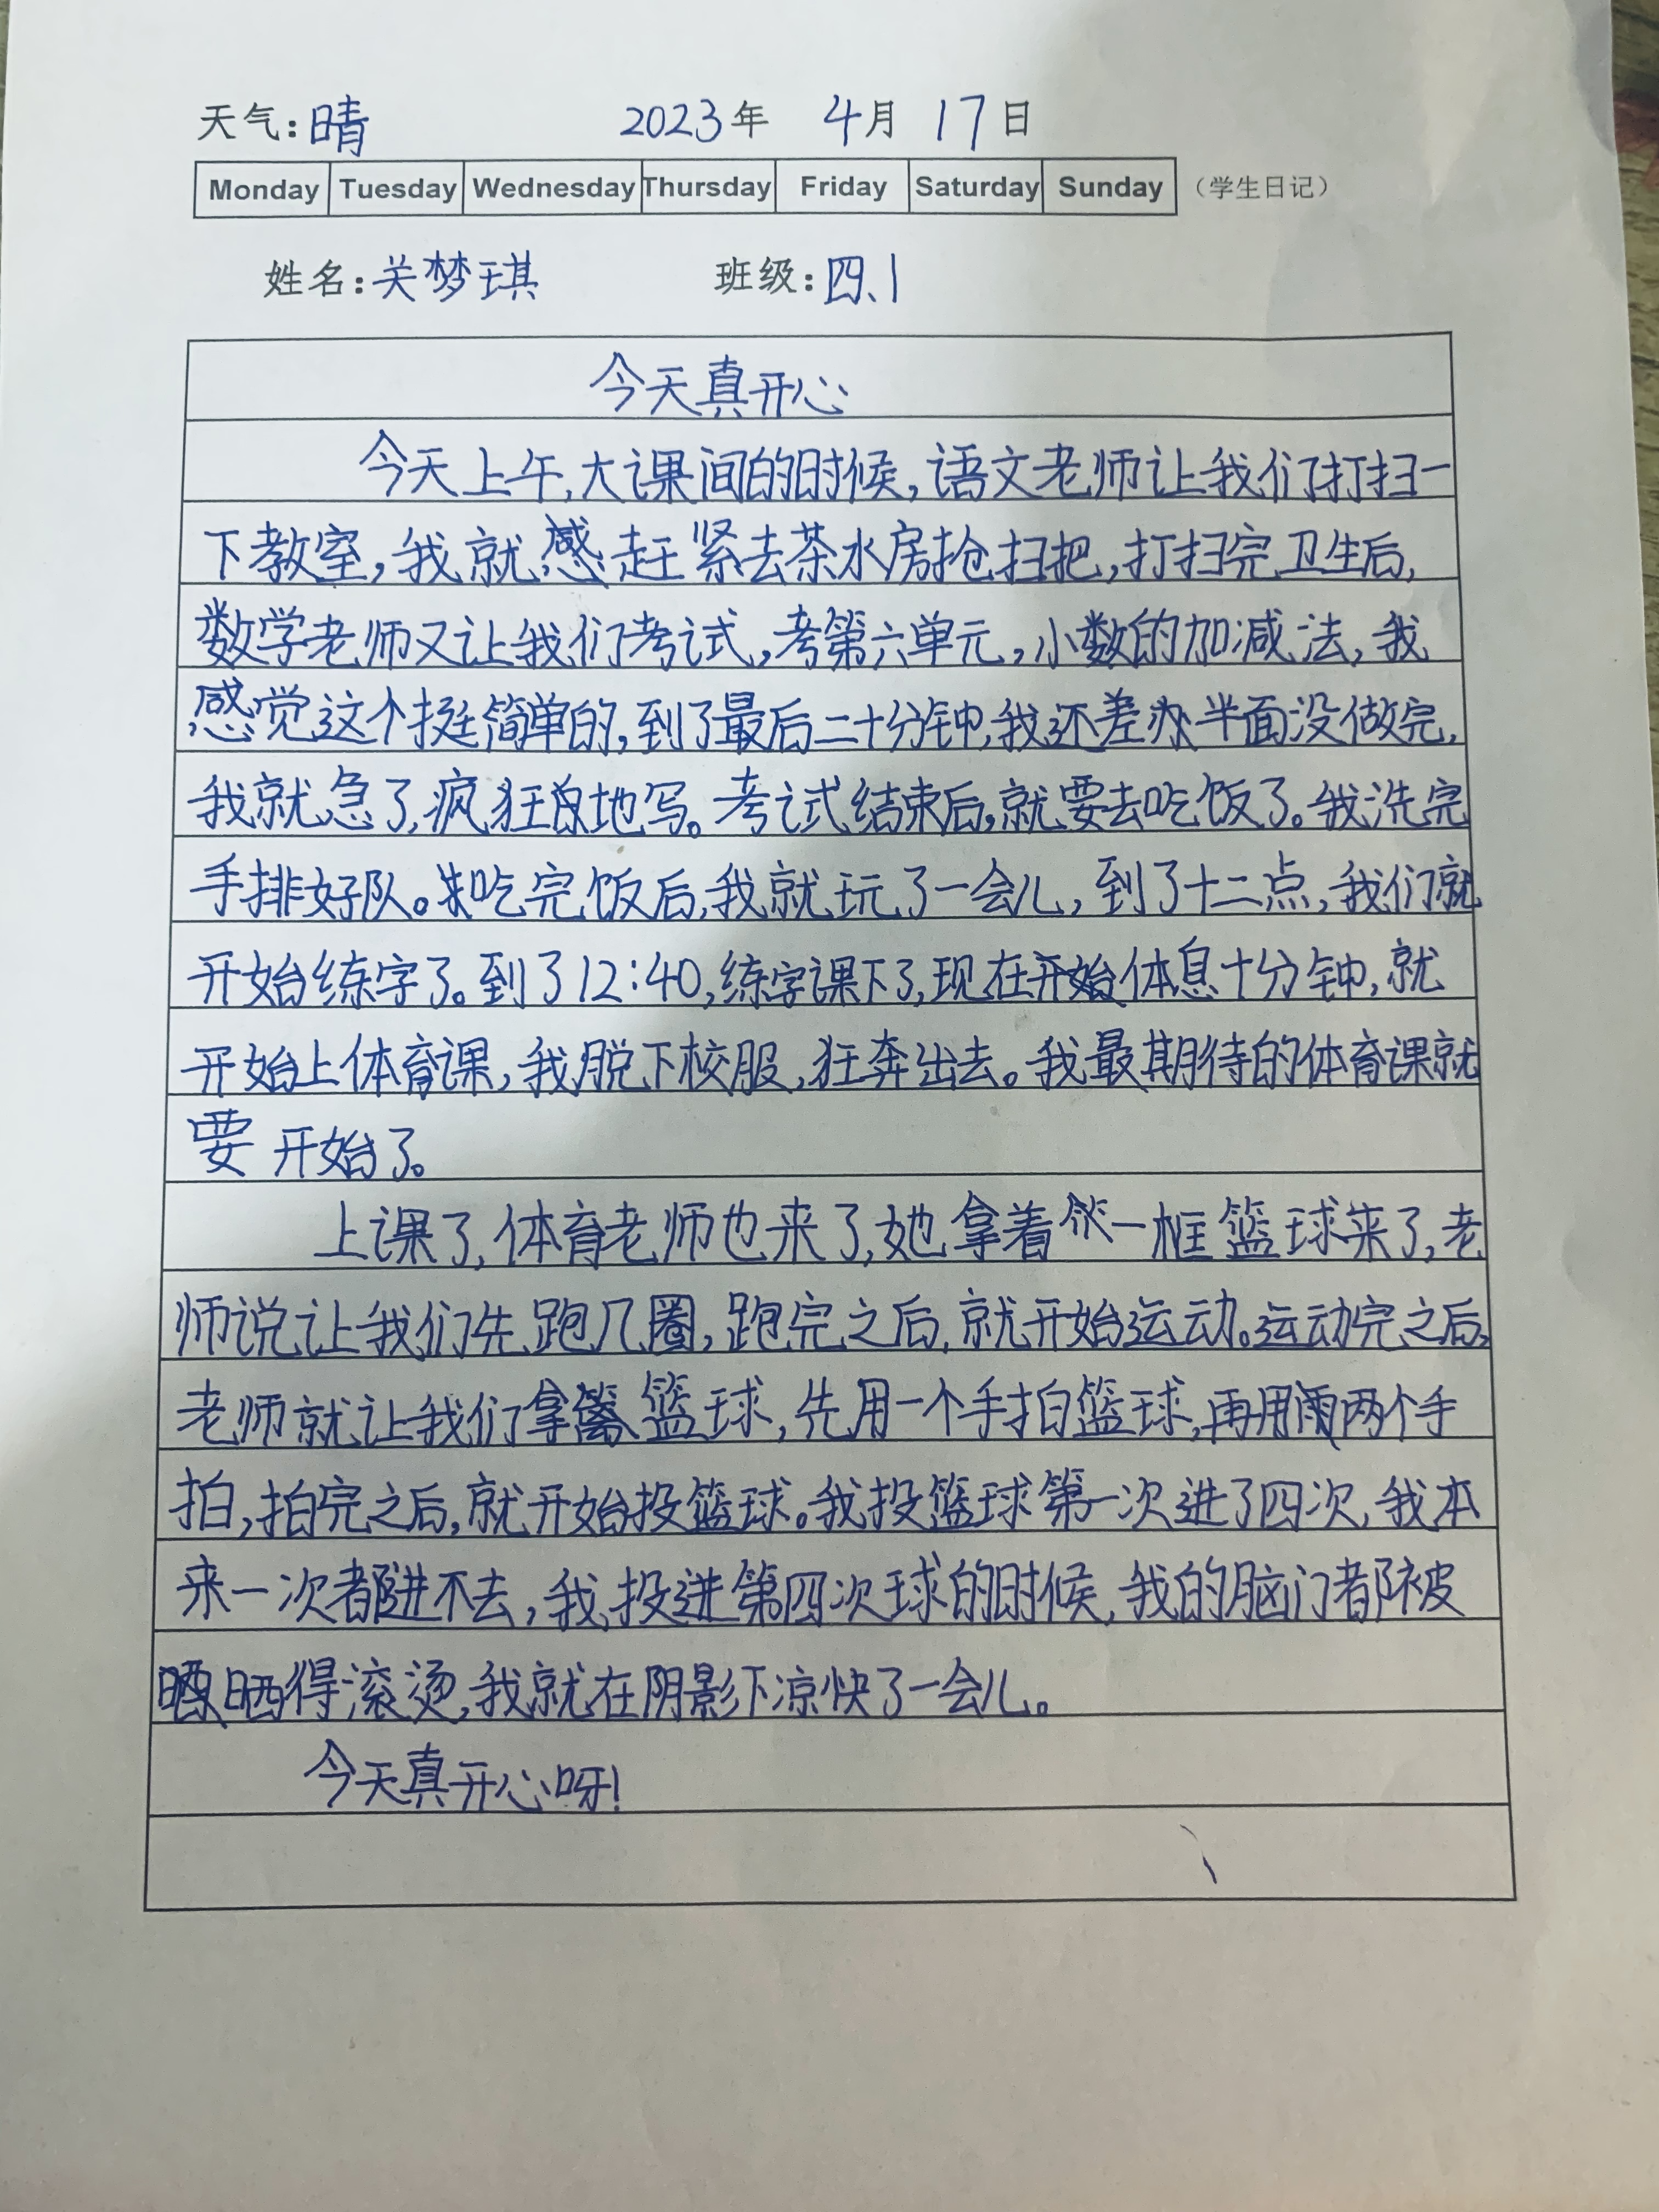 天气:晴 2023年 4月 17日
Monday Tuesday Wednesday Thursday Friday Saturday Sunday (学生日记)
姓名:关梦琪 班级:四、1
今天真开心
今天上午,大课间的时候,语文老师让我们打扫一
下教室,我就赶紧去茶水房抢扫把,打扫完卫生后,
数学老师又让我们考试,考第六单元,小数的加减法,我
感觉这个挺简单的,到了最后二十分钟,我还差半面没做完,
我就急了,疯狂地写。考试结束后,就要去吃饭了。我洗完
手排好队。吃完饭后,我就玩了一会儿,到了十二点,我们就
开始练字了。到了12:40,练字课下了,现在开始体息十分钟,就
开始上体育课,我脱下校服,狂奔出去。我最期待的体育课就
要开始了。
上课了,体育老师也来了,她拿着一框篮球来了,老
师说让我们先跑几圈,跑完之后,就开始运动。运动完之后,
老师就让我们拿篮球,先用一个手拍篮球,再用两个手
拍,拍完之后,就开始投篮球。我投篮球第一次进了四次,我本
来一次都进不去,我投进第四次球的时候,我的脑门都被
晒得滚烫,我就在阴影下凉快了一会儿。
今天真开心呀!